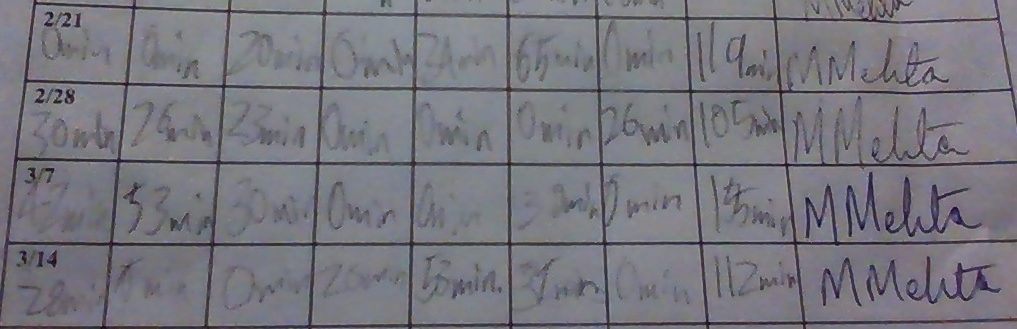 MMehta
2/21
0min 0min 20min 0min 34min 65min 0min 119min MMehta
2/28
30min 26min 23min 0min 0min 0min 26min 105min MMehta
3/7
53min 30min 0min 0min 0min MMehta
3/14
28min 0min 26min 53min. 0min 112min MMehta